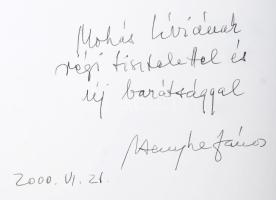 Mohás Líviának
régi tisztelettel és
új barátsággal
János
2000. VI. 21.